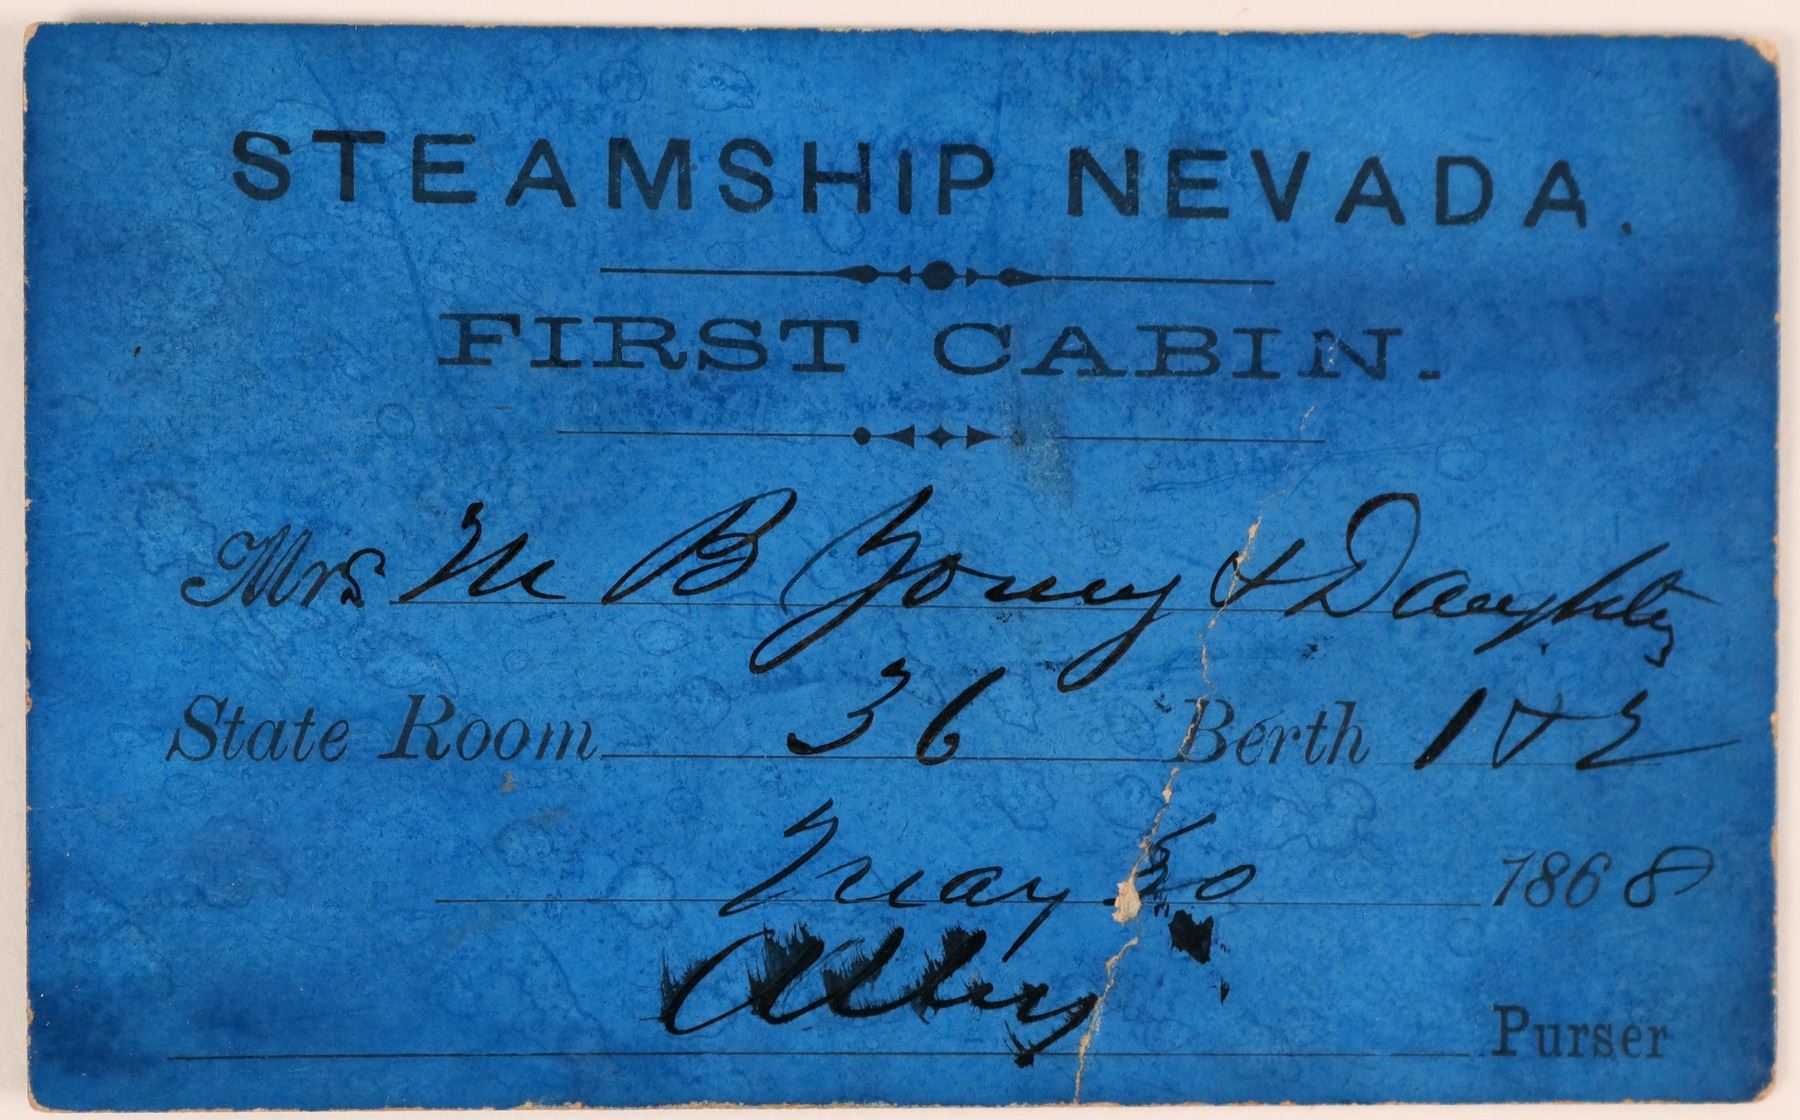 STEAMSHIP NEVADA.
FIRST CABIN.
Mrs M B Young & Daughter
State Room 36 Berth 1 & 2
May 1868
Purser